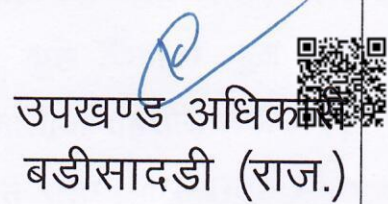 उपखण्ड अधिकारी
बडीसादडी (राज.)